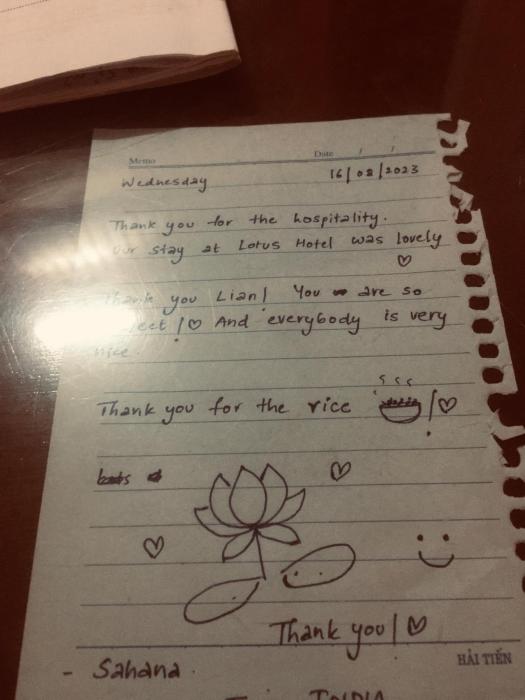 Memo Date / /
Wednesday 16/08/2023
Thank you for the hospitality.
Our stay at Lotus Hotel was lovely
Thank you Lian! You are so
And everybody is very
nice.
Thank you for the rice
Thank you!
HẢI TIẾN
- Sahana.
INDIA